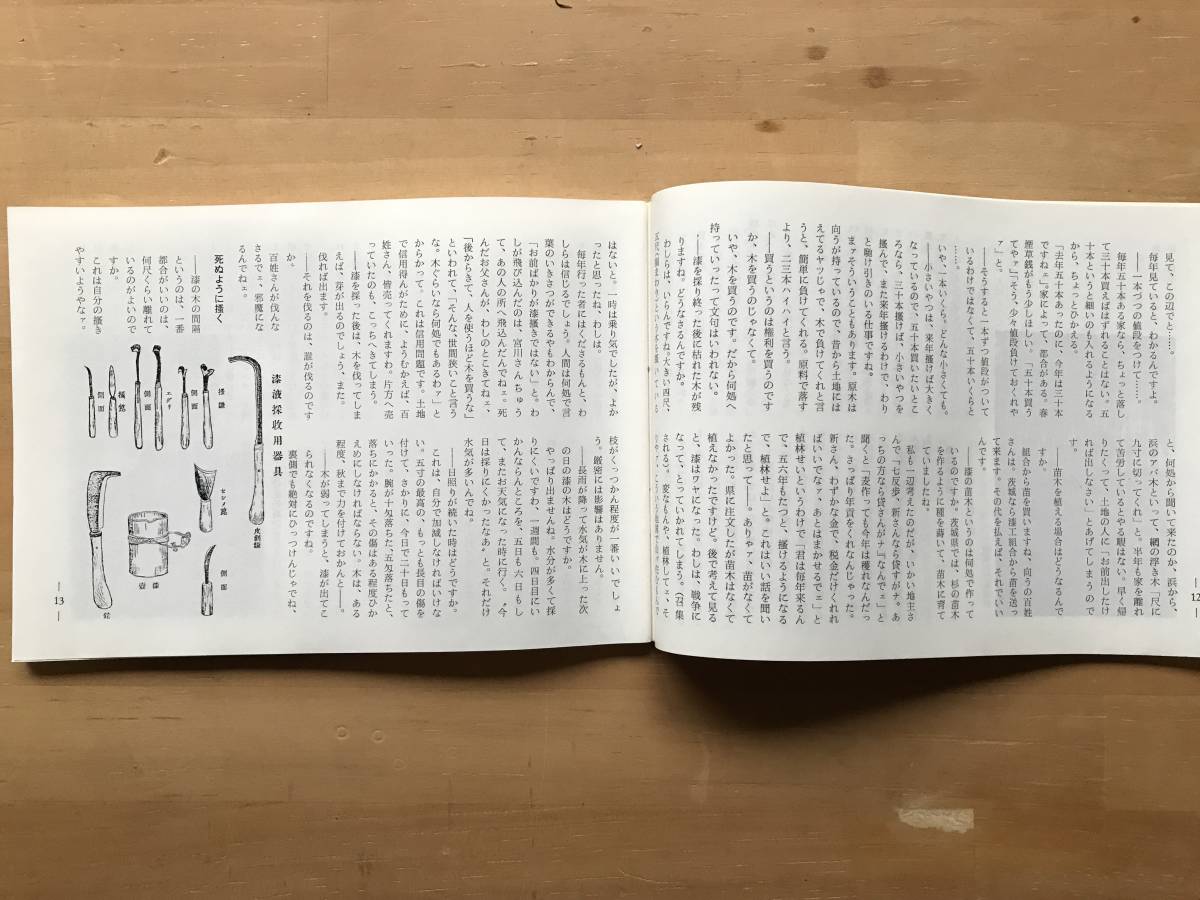 見て、この辺でと……。
毎年見ていると、わかるんですよ。
――一本づつの値段をつけてでも。
毎年五十本ある家なら、ちょっと落し
て三十本買えばはずれることはない。五
十本というと細いのも入れるようになる
から、ちょっとひかえる。
「去年五十本あったのに、今年は三十本
ですね」。「家によって、都合がある。春
煙草銭がもう少しほしい。「五十本買う
てやァ」。「そう、少々値段負けておくれや
ァ」と。
――そうすると一本ずつ値段がついて
いるわけではなくて、五十本いくらと
……。
いや、一本いくら。どんな小さくても。
――小さいやつは、来年搔けば大きく
なっているので、五十本買いたいとこ
ろなら、三十本搔けば、小さいやつを
搔んで、また来年搔けるわけで、わり
と駆け引きのいる仕事ですね。
まァそういうこともあります。原木は
向うが持っているので、昔から土地には
えてるヤツじゃで、木で負けてくれと言
うと、簡単に負けてくれる。原料で落す
より、二三本ハイハイと言う。
――買うというのは権利を買うのです
か、木を買うのじゃなくて。
いや、木を買うのです。だから何処へ
持っていったって文句はいわれない。
――漆を採り終った後に枯れた木が残
りますね。どうなさるんですか。
わしらは、いらんですね。
と、何処から聞いて来たのか、浜から、
浜のアバ木といって、網の浮き木「尺に
九寸に切ってくれ」と。半年も家を離れ
て苦労しているとやる暇はない。早く帰
りたくって、土地の人に「お前出したけ
れば出しなさい」とあげてしまうので
す。
――苗木を植える場合はどうなるんで
すか。
組合から苗を買いますね、向うの百姓
さんは。茨城なら漆工組合から苗を送っ
て来ます。その代を払えば、それでいい
んです。
――漆の苗木というのは何処で作って
いるのですか。茨城県では、杉の苗木
を作るように種を蒔いて、苗木に育て
ていましたね。
私も一辺考えたのだが、いかい地主さ
んで「七反歩、新さんなら貸すがナ。あ
っちの方なら貸さんがナ」「なんでェ」と
聞くと「麦作っても今年は穫れなんだっ
た。さっぱり年貢をくれなんじゃった。
新さん、わずかな金で、税金だけくれれ
ばいいでなァ、あとはまかせるでェ」と
植林せいというわけで「君は毎年来るん
で、五六年もたつと、搔けるようになる
で、植林せよ」と。これはいい話を聞い
たと思って――。ありゃァ、苗がなくて
よかった。県に注文したが苗木はなくて
植えなかったですけど。後で考えて見る
と、漆はワヤになった。わしは、戦争に
なって、とっていかれてしまう。(召集
される)、変なもんや、植林してェ、そ
12
はないと。一時は乗り気でしたが、よか
ったと思ったね、わしは。
毎年行った者にはくださるもんと、わ
しらは信じるでしょう。人間は何処で言
葉のいきさつができるやもわからんで、
「お前ばかりが漆搔きではない」と。わ
しが飛び込んだのは、宮川さんちゅう
て、あの人の所へ飛込んだんでねェ。死
んだお父さんが、わしのとこきてねェ、
「後からきて、人を使うほど木を買うな」
といわれて、「そんな、世間狭いこと言う
な。木ぐらいなら何処でもあるわァ」と
からかって。これは信用問題です。土地
で信用得んがために、ようかかえば、百
姓さん、皆売ってくれますわ。片方へ売
っていたのも、こっちへきてしまう。
――漆を採った後は、木を伐ってしま
えば、芽が出るのでしょう、また。
伐れば出ます。
――それを伐るのは、誰が伐るのです
か。
百姓さんが伐んな
さるでェ、邪魔にな
るんでねェ。
死ぬように搔く
――漆の木の間隔
というのは、一番
都合がいいのは、
何尺くらい離れて
いるのがよいので
すか。
これは自分の搔き
やすいようやなァ。
枝がくっつかん程度が一番いいでしょ
う。厳密には影響はありません。
――長雨が降って水気が木に上った次
の日の漆の木はどうですか。
やっぱり出ませんね。水分が多くて採
りにくいですわ、一週間も。四日目にい
かんならんところを、五日も六日もし
て、またお天気になった時に行く。〝今
日は採りにくかったなあ〟と。それだけ
水気が多いんでね。
――日照りが続いた時はどうですか。
これは、自分で加減しなければいけな
い。五寸の最高の、もっとも長目の傷を
付けて、さかりに、今日で二十目もって
いった。腕が十匁落ちた、五匁落ちたと、
落ちにかかると、その傷はある程度ひか
えめにしなければならない。木は、ある
程度、秋まで力を付けておかんと――。
――木が弱ってしまうと、漆が出てこ
られなくなるのですね。
裏側でも絶対にひっつけんじゃでね、
漆液採收用器具
皮剝鎌
搔鎌
側面
エグリ
側面
側面
セシメ篦
側面
漆壺
鉈
13